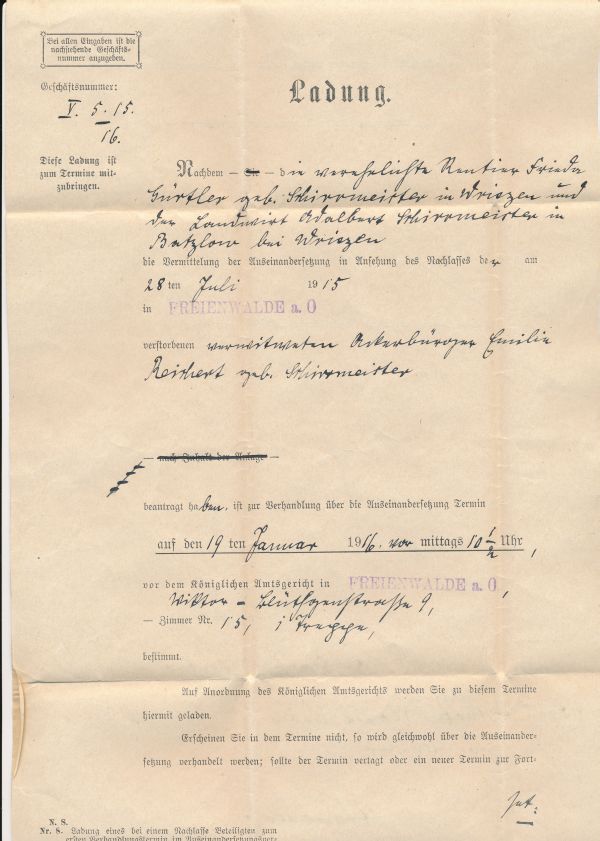 Bei allen Eingaben ist die
nachstehende Geschäfts-
nummer anzugeben.
Geschäftsnummer:
V. 5. 15.
16.
Diese Ladung ist
zum Termine mit-
zubringen.
Ladung.
Nachdem — die verehelichte Rentier Frieda
Gürtler geb. Schirrmeister in Wriezen und
der Landwirt Adalbert Schirrmeister in
Batzlow bei Wriezen
die Vermittelung der Auseinandersetzung in Ansehung des Nachlasses der am
28 ten Juli 1915
in FREIENWALDE a. O
verstorbenen verwitweten Ackerbürger Emilie
Reichert geb. Schirrmeister
— nach Inhalt der Anlage —
beantragt haben, ist zur Verhandlung über die Auseinandersetzung Termin
auf den 19 ten Januar 1916. vor mittags 10 1/2 Uhr,
vor dem Königlichen Amtsgericht in FREIENWALDE a. O,
Viktor - Blüthgenstraße 9,
— Zimmer Nr. 15, 1 Treppe,
bestimmt.
Auf Anordnung des Königlichen Amtsgerichts werden Sie zu diesem Termine
hiermit geladen.
Erscheinen Sie in dem Termine nicht, so wird gleichwohl über die Auseinander-
setzung verhandelt werden; sollte der Termin vertagt oder ein neuer Termin zur Fort-
N. S.
Nr. 8. Ladung eines bei einem Nachlasse Beteiligten zum
ersten Verhandlungstermin im Auseinandersetzungsver-